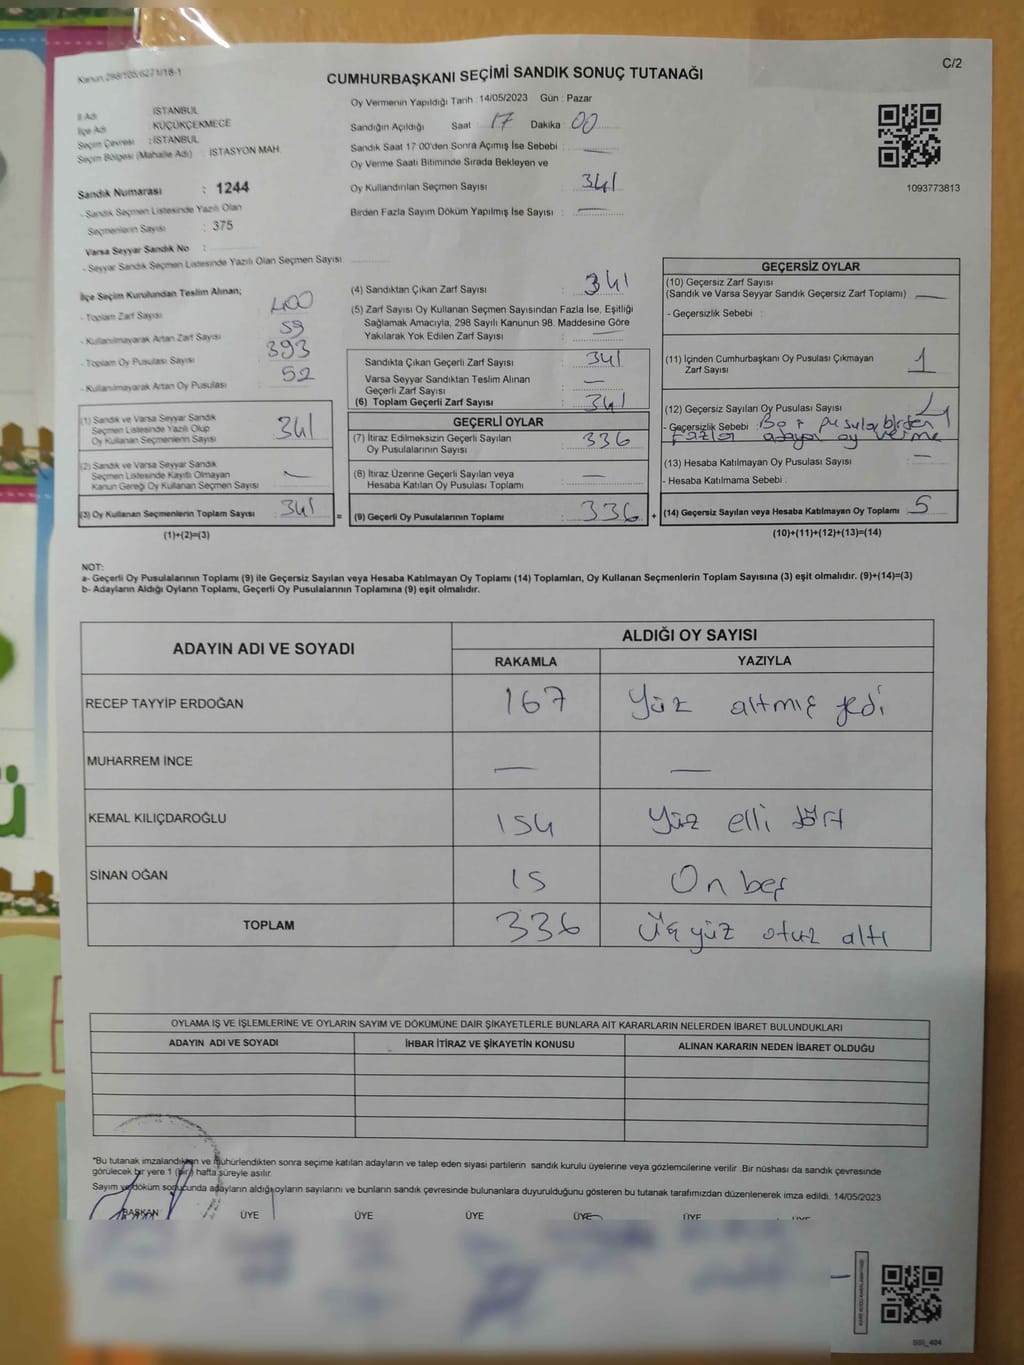 Kanun.298/105,6271/18-1
C/2
CUMHURBAŞKANI SEÇİMİ SANDIK SONUÇ TUTANAĞI
İl Adı İSTANBUL
İlçe Adı KÜÇÜKÇEKMECE
Seçim Çevresi : İSTANBUL
Seçim Bölgesi (Mahalle Adı) : İSTASYON MAH.
Sandık Numarası : 1244
- Sandık Seçmen Listesinde Yazılı Olan
Seçmenlerin Sayısı : 375
Varsa Seyyar Sandık No :
- Seyyar Sandık Seçmen Listesinde Yazılı Olan Seçmen Sayısı
Oy Vermenin Yapıldığı Tarih : 14/05/2023 Gün : Pazar
Sandığın Açıldığı Saat : 17 Dakika : 00
Sandık Saat 17:00'den Sonra Açımış İse Sebebi : —
Oy Verme Saati Bitiminde Sırada Bekleyen ve
Oy Kullandırılan Seçmen Sayısı : 341
Birden Fazla Sayım Döküm Yapılmış İse Sayısı : —
1093773813
İlçe Seçim Kurulundan Teslim Alınan;
- Toplam Zarf Sayısı : 400
- Kullanılmayarak Artan Zarf Sayısı : 59
- Toplam Oy Pusulası Sayısı : 393
- Kullanılmayarak Artan Oy Pusulası : 52
(1) Sandık ve Varsa Seyyar Sandık
Seçmen Listesinde Yazılı Olup
Oy Kullanan Seçmenlerin Sayısı : 341
(2) Sandık ve Varsa Seyyar Sandık
Seçmen Listesinde Kayıtlı Olmayan
Kanun Gereği Oy Kullanan Seçmen Sayısı : —
(3) Oy Kullanan Seçmenlerin Toplam Sayısı : 341
(1)+(2)=(3)
=
(4) Sandıktan Çıkan Zarf Sayısı : 341
(5) Zarf Sayısı Oy Kullanan Seçmen Sayısından Fazla İse, Eşitliği
Sağlamak Amacıyla, 298 Sayılı Kanunun 98. Maddesine Göre
Yakılarak Yok Edilen Zarf Sayısı : —
Sandıkta Çıkan Geçerli Zarf Sayısı : 341
Varsa Seyyar Sandıktan Teslim Alınan
Geçerli Zarf Sayısı : —
(6) Toplam Geçerli Zarf Sayısı : 341
GEÇERLİ OYLAR
(7) İtiraz Edilmeksizin Geçerli Sayılan
Oy Pusulalarının Sayısı : 336
(8) İtiraz Üzerine Geçerli Sayılan veya
Hesaba Katılan Oy Pusulası Toplamı : —
(9) Geçerli Oy Pusulalarının Toplamı : 336
+
GEÇERSİZ OYLAR
(10) Geçersiz Zarf Sayısı
(Sandık ve Varsa Seyyar Sandık Geçersiz Zarf Toplamı) : —
- Geçersizlik Sebebi :
(11) İçinden Cumhurbaşkanı Oy Pusulası Çıkmayan
Zarf Sayısı : 1
(12) Geçersiz Sayılan Oy Pusulası Sayısı : 4
- Geçersizlik Sebebi : Boş pusula, birden
fazla adaya oy verme
(13) Hesaba Katılmayan Oy Pusulası Sayısı : —
- Hesaba Katılmama Sebebi :
(14) Geçersiz Sayılan veya Hesaba Katılmayan Oy Toplamı : 5
(10)+(11)+(12)+(13)=(14)
NOT:
a- Geçerli Oy Pusulalarının Toplamı (9) ile Geçersiz Sayılan veya Hesaba Katılmayan Oy Toplamı (14) Toplamları, Oy Kullanan Seçmenlerin Toplam Sayısına (3) eşit olmalıdır. (9)+(14)=(3)
b- Adayların Aldığı Oyların Toplamı, Geçerli Oy Pusulalarının Toplamına (9) eşit olmalıdır.
ADAYIN ADI VE SOYADI ALDIĞI OY SAYISI
RAKAMLA YAZIYLA
RECEP TAYYİP ERDOĞAN 167 Yüz altmış yedi
MUHARREM İNCE — —
KEMAL KILIÇDAROĞLU 154 Yüz elli dört
SİNAN OĞAN 15 On beş
TOPLAM 336 Üç yüz otuz altı
OYLAMA İŞ VE İŞLEMLERİNE VE OYLARIN SAYIM VE DÖKÜMÜNE DAİR ŞİKAYETLERLE BUNLARA AİT KARARLARIN NELERDEN İBARET BULUNDUKLARI
ADAYIN ADI VE SOYADI İHBAR İTİRAZ VE ŞİKAYETİN KONUSU ALINAN KARARIN NEDEN İBARET OLDUĞU
*Bu tutanak imzalandıktan ve mühürlendikten sonra seçime katılan adayların ve talep eden siyasi partilerin sandık kurulu üyelerine veya gözlemcilerine verilir. Bir nüshası da sandık çevresinde
görülecek bir yere 1 (bir) hafta süreyle asılır.
Sayım ve döküm sonucunda adayların aldığı oyların sayılarını ve bunların sandık çevresinde bulunanlara duyurulduğunu gösteren bu tutanak tarafımızdan düzenlenerek imza edildi. 14/05/2023
BAŞKAN ÜYE ÜYE ÜYE ÜYE ÜYE ÜYE
SSI_404